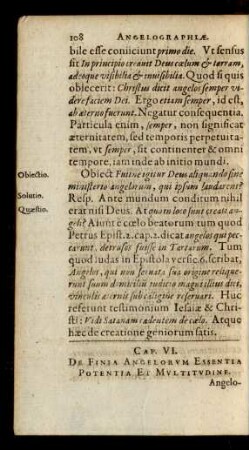 108 ANGELOGRAPHIÆ
bile esse coniiciunt primo die. Vt sensus
sit In principio creauit Deus cœlum & terram,
adeoque visibilia & inuisibilia. Quod si quis
obiecerit: Christus dicit angelos semper vi-
dere faciem Dei. Ergo etiam semper, id est,
ab æterno fuerunt. Negatur consequentia.
Particula enim, semper, non significat
æternitatem, sed temporis perpetuita-
tem, vt semper, sit continenter & omni
tempore, iam inde ab initio mundi.
Obiectio.
Obiect. Fuit igitur Deus aliquando sine
ministerio angelorum, qui ipsum laudarent?
Solutio.
Resp. Ante mundum conditum nihil
Quæstio.
erat nisi Deus. At quo in loco sunt creati an-
geli? Aiunt e cœlo beatorum tum quod
Petrus Epist. 2. cap. 2. dicat angelos qui pec-
carunt, detrusos fuisse in Tartarum. Tum
quod Iudas in Epistola versic. 6. scribat,
Angelos, qui non seruata sua origine relique-
runt suum domicilium iudicio magni illius diei,
vinculis æternis sub caligine reseruari. Huc
referunt testimonium Iesaiæ & Chri-
sti: Vidi Satanam cadentem de cælo. Atque
hæc de creatione geniorum satis.
CAP. VI.
DE FINIA ANGELORVM ESSENTIA
POTENTIA ET MVLTITVDINE.
Angelo-